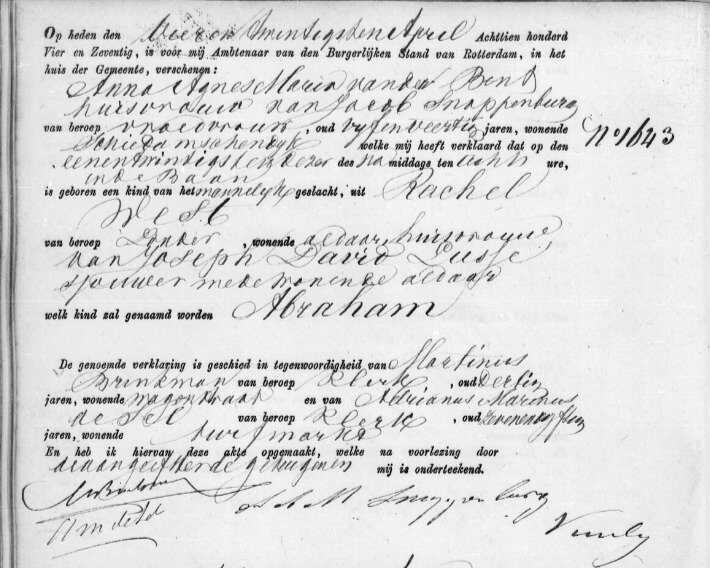 Op heden den Vier en Twintigsten April Achttien honderd
Vier en Zeventig, is vóór mij Ambtenaar van den Burgerlijken Stand van Rotterdam, in het
huis der Gemeente, verschenen:
Anna Agnes Maria van der Bent
huisvrouw van Jacob Snappenburg
van beroep vroedvrouw, oud vyfenveertig jaren, wonende
Schiedamschendyk welke mij heeft verklaard dat op den
eenentwintigsten dezer des namiddags ten acht ure,
in de Baan
is geboren een kind van het mannelyk geslacht, uit Rachel
van beroep Zonder, wonende aldaar, huisvrouw
van Joseph David Lusse
mede wonende aldaar
welk kind zal genaamd worden Abraham
No 1643
De genoemde verklaring is geschied in tegenwoordigheid van Martinus
Brinkman van beroep Klerk, oud Dertig
jaren, wonende en van Adrianus Marinus
van beroep Klerk, oud
jaren, wonende turfmarkt
En heb ik hiervan deze akte opgemaakt, welke na voorlezing door
de aangeefster de getuigen en mij is onderteekend.